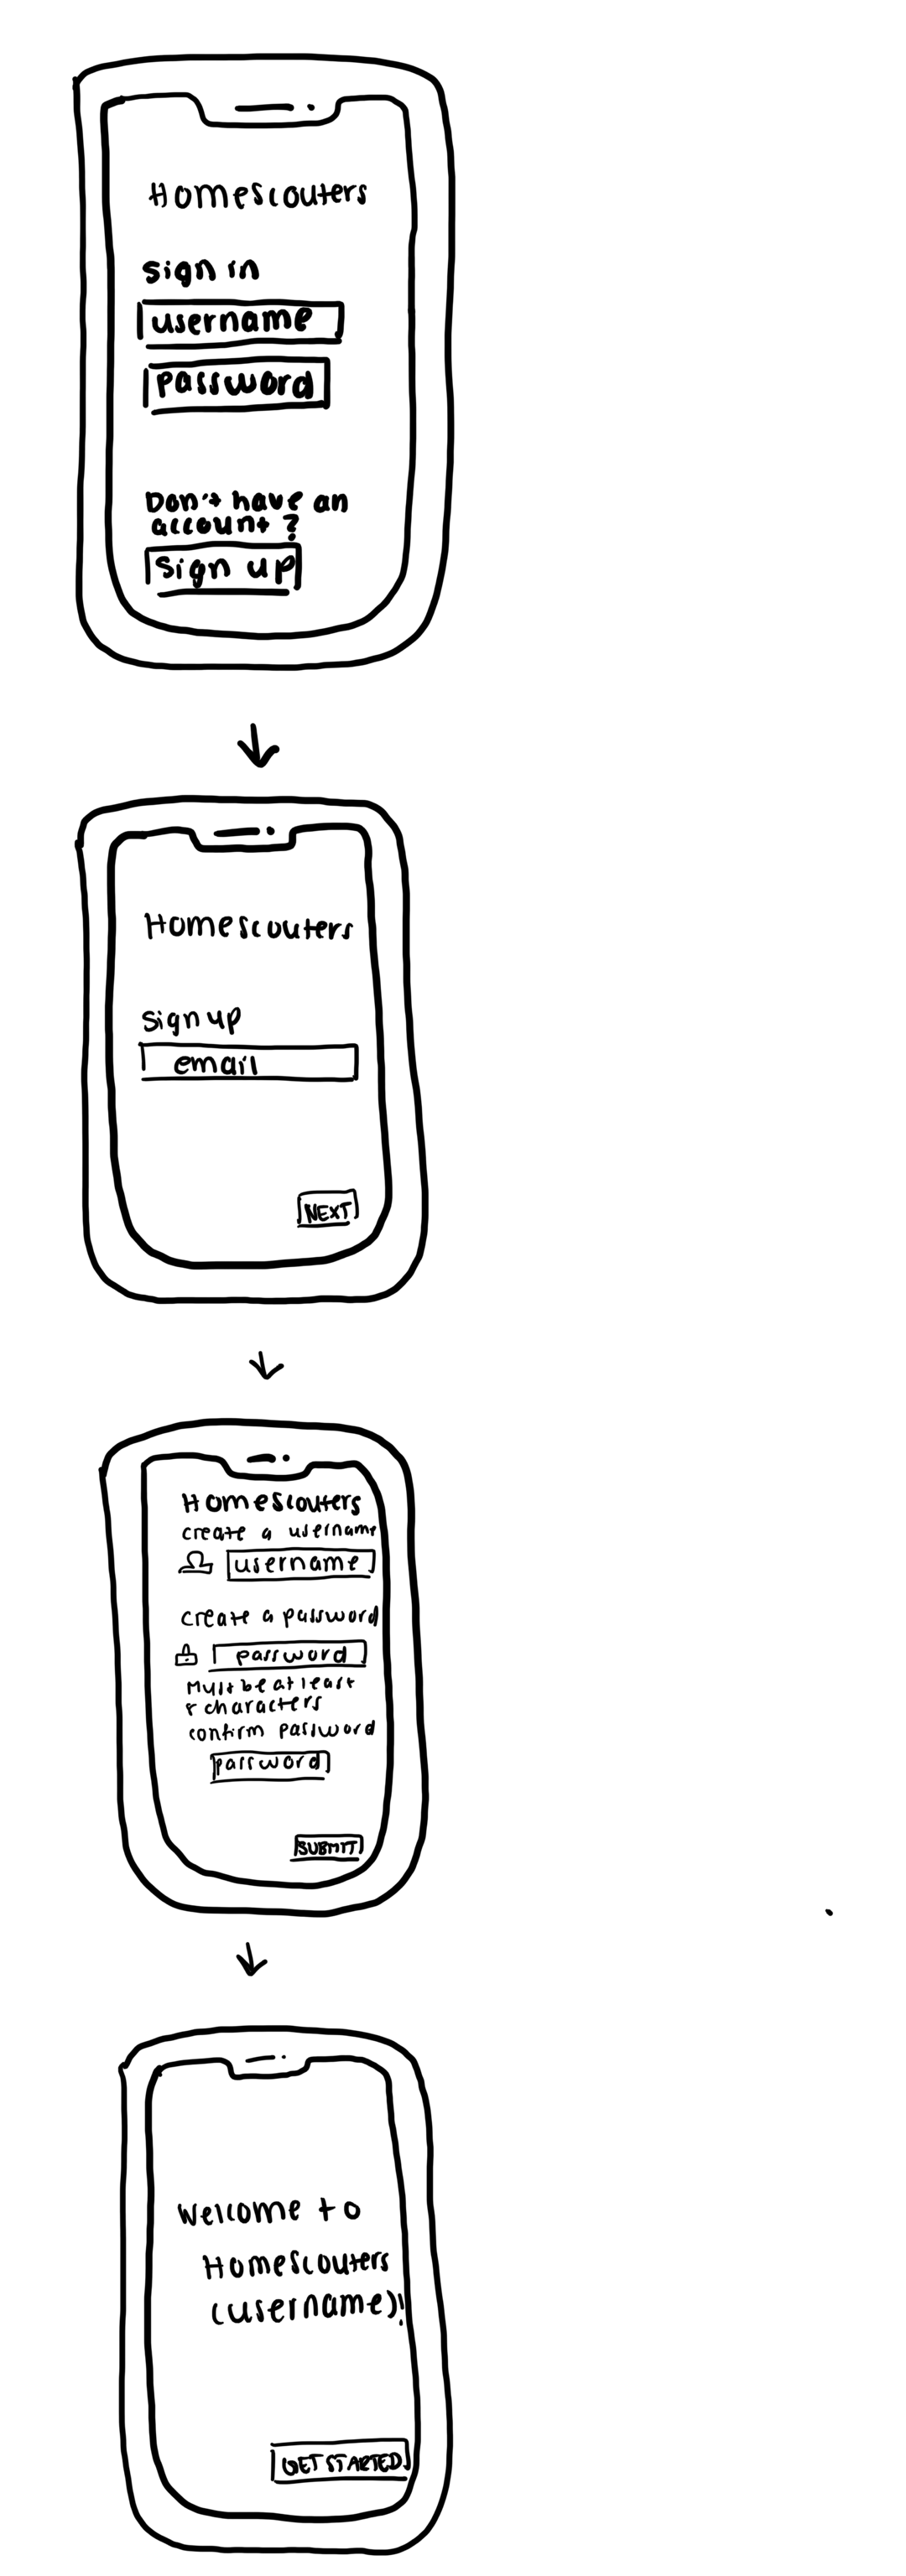 Homescouters
sign in
username
password
Don't have an
account?
sign up
Homescouters
sign up
email
NEXT
Homescouters
create a username
username
create a password
password
Must be at least
8 characters
confirm password
password
SUBMIT
Welcome to
Homescouters
(username)!
GET STARTED